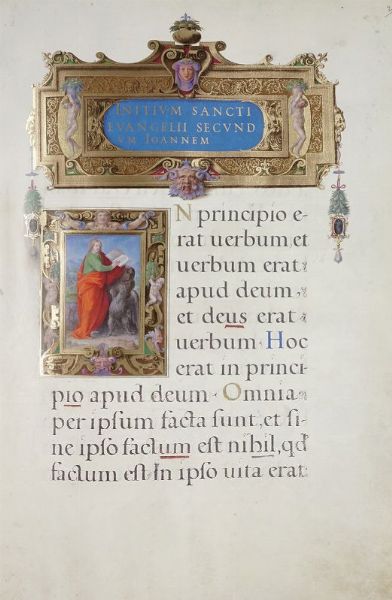 INITIVM SANCTI
EVANGELII SECVND
VM IOANNEM
N principio e-
rat uerbum, et
uerbum erat
apud deum,
et deus erat
uerbum· Hoc
erat in princi
pio apud deum· Omnia
per ipsum facta sunt, et si-
ne ipso factum est nihil, qd
factum est· In ipso uita erat·